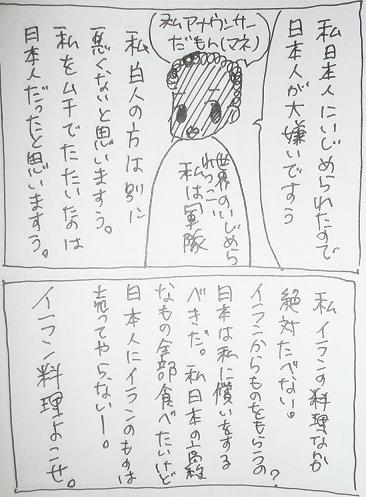 私日本人にいじめられたので
日本人が大嫌いですう
私アナウンサー
だもん(マネ)
世界のいじめら
れっこ
私は軍隊
私白人の方は別に
悪くないと思いますう。
私をムチでたたいたのは
日本人だったと思いますう。
私イランの料理なんか
絶対たべない。
イランからものをもらうの?
日本は私に償いをする
べきだ。私日本の高級
なもの全部食べたいけど
日本人にイランのものは
売ってやらないー。
イラン料理よこせ。